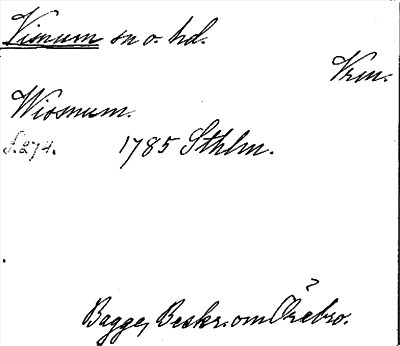 Visnum sn o. hd.
Vrm.
Wiosnum.
s. 274. 1785 Sthlm.
Bagge, Beskr. om Örebro.